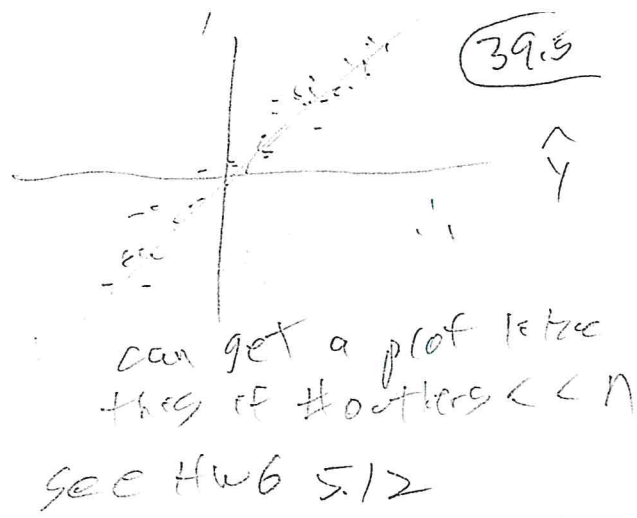 39.5
Ŷ
can get a plot like
this if # outliers < < n
see HW6 5.12